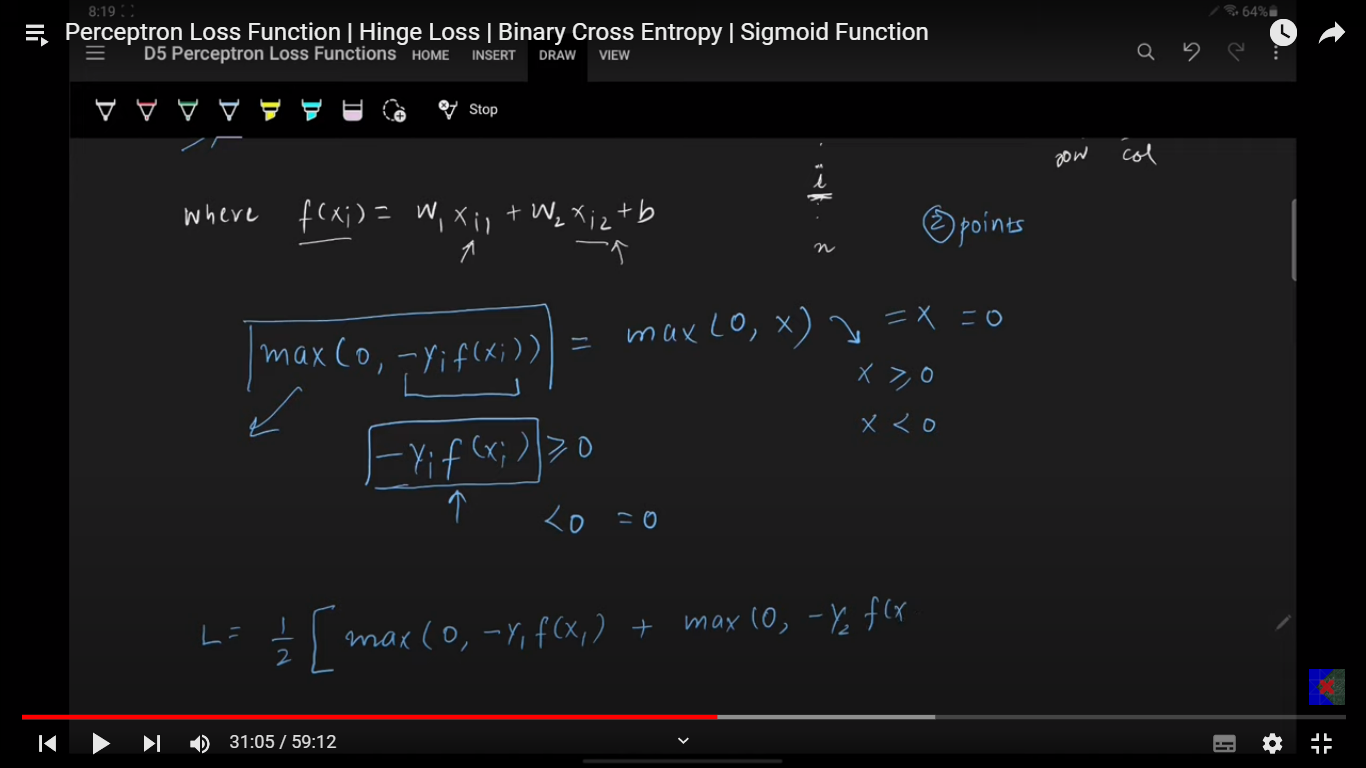 8:19 64%
Perceptron Loss Function | Hinge Loss | Binary Cross Entropy | Sigmoid Function
D5 Perceptron Loss Functions HOME INSERT DRAW VIEW
Stop
row col
i
where f(xi) = W1 xi1 + W2 xi2 + b
2 points
n
max(0, -Yi f(xi)) = max(0, x) = x = 0
x ≥ 0
x < 0
-Yi f(xi) ≥ 0
<0 = 0
L = 1/2 [ max(0, -Y1 f(x1) + max(0, -Y2 f(x
31:05 / 59:12